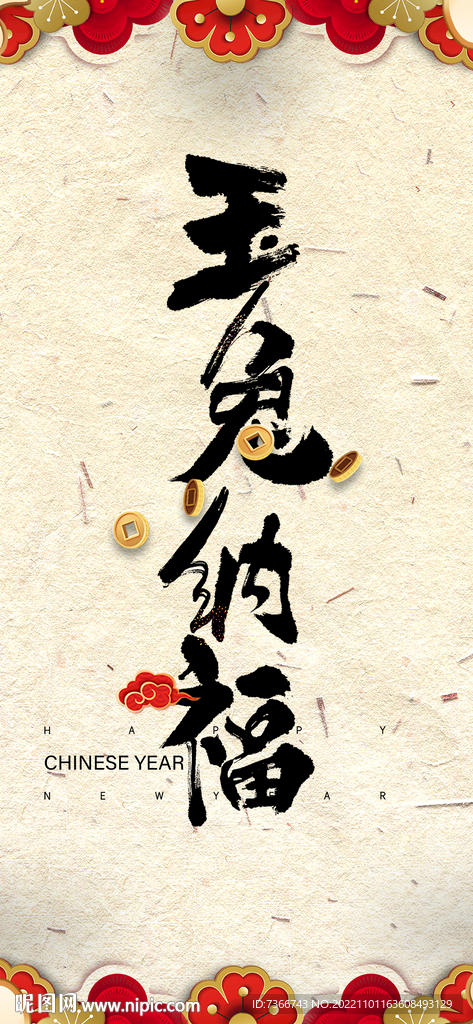 玉兔纳福
HAPPY
CHINESE YEAR
NEW YEAR
昵图网 www.nipic.com
ID:7366743 NO.20221101163608493129